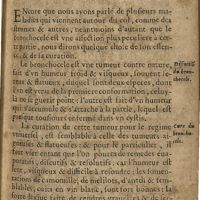 ENcore que nous ayons parlé de plusieurs ma-
ladies qui viennent autour du col, comme des
& autres, neantmoins d'autant que le
bronchocele est vne affection plus peculiere à ce-
partie, nous dirons quelque chose de son essen-
& de la curation.
Le bronchocele est vne tumeur contre nature,
fait d'vn humeur froid & visqueux, souuent le-
& flatueux, duquel sont deux especes, dont
l'vn est en vne premiere conformation, celuy-
là ne se guerit point: l'autre est fait d'vn humeur
qui s'accumule & s'attache à la partie, lequel est
presque tousiours enfermé dans vn cystis.
La curation de cette tumeur pour le regime
viuere, est semblable à celle des tumeurs
& flatueuses: & pour le particulier, il
faut voir auant que l'on pourra de remedes
discutifs & resolutifs: car l'humeur est
visqueux & difficile à resoudre: les fomen-
tations de camomille, de melilot, d'aneth & sem-
blables, cuits en vin blanc, sont fort bonnes: la
forte lexiue faite de cendres grauelées & de
du bron-
chocele.
Cure du
bron-